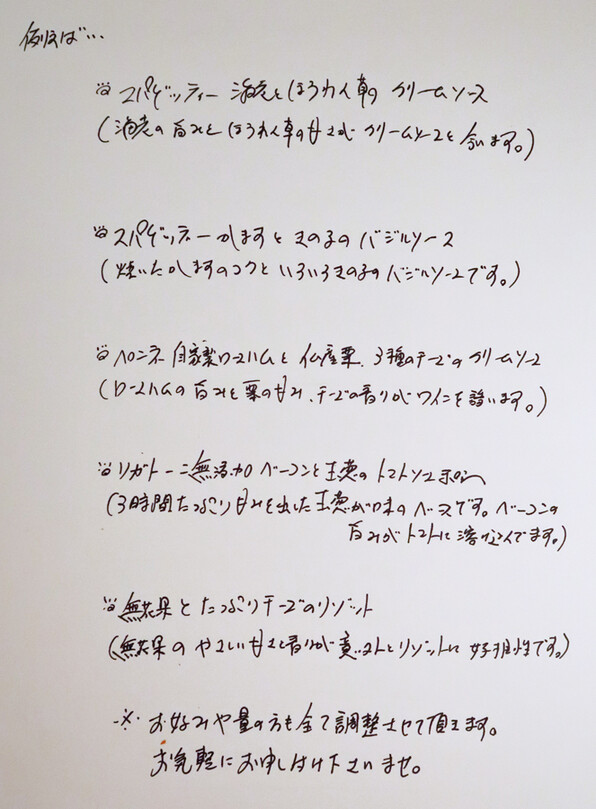 例えば…
スパゲッティー 海老とほうれん草の クリームソース
(海老の旨みとほうれん草の甘さが クリームソースと合います。)
スパゲッティー かますときのこの バジルソース
(焼いたかますのコクといろいろきのこのバジルソースです。)
ペンネ 自家製ロースハムと 仏産栗、3種のチーズの クリームソース
(ロースハムの旨みと栗の甘み、チーズの香りがワインを誘います。)
リガトーニ 無添加 ベーコンと玉葱の トマトソース
(3時間たっぷり甘みを出した玉葱が味のベースです。ベーコンの
旨みがトマトに溶け込んでます。)
無花果とたっぷりチーズのリゾット
(無花果の やさしい甘さと香りが意外とリゾットに好相性です。)
※ お好みや量の方も全て調整させて頂きます。
お気軽にお申し付け下さいませ。